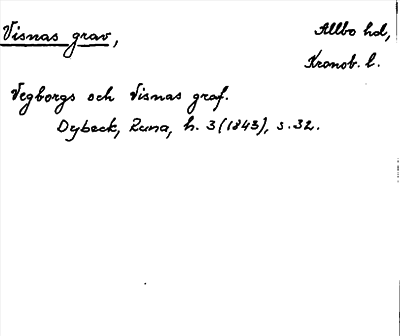 Visnas grav,
Allbo hd,
Kronob. l.
Vegborgs och Visnas graf.
Dybeck, Runa, h. 3 (1843), s. 32.